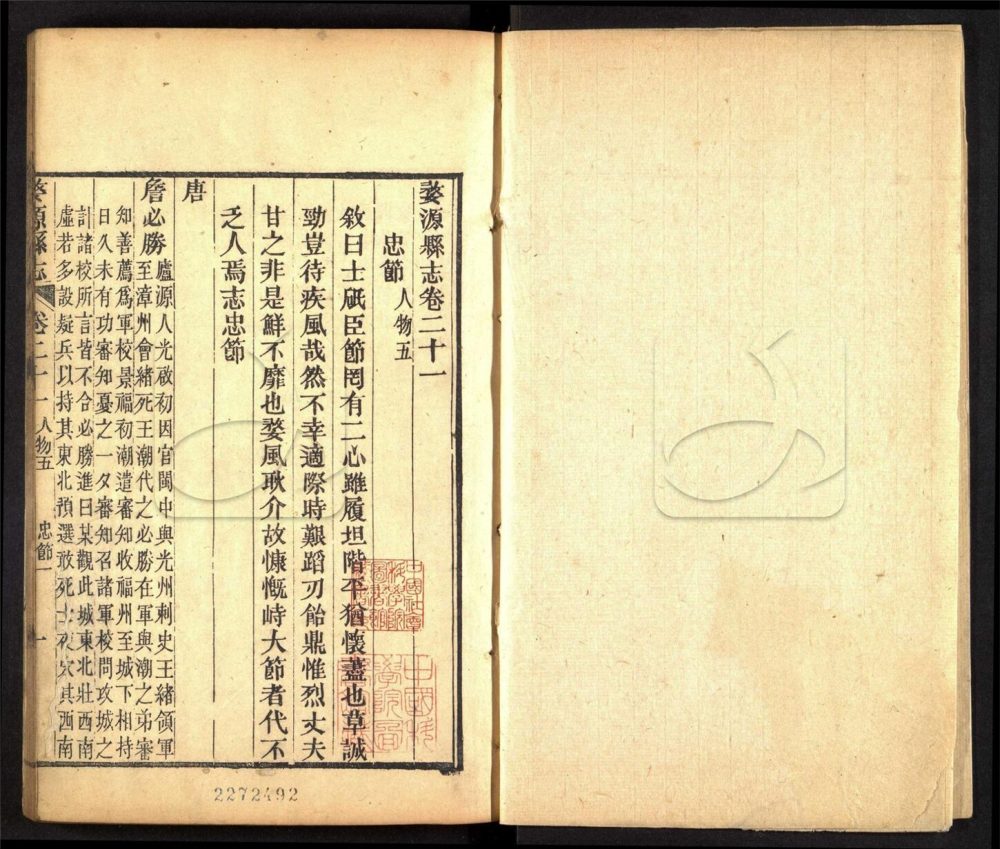 婺源縣志卷二十一
忠節 人物五
敘曰士砥臣節罔有二心雖履坦階平猶懷藎也草誠
勁豈待疾風哉然不幸適際時艱蹈刃飴鼎惟烈丈夫
甘之非是鮮不靡也婺風耿介故慷慨峙大節者代不
乏人焉志忠節
唐
詹必勝 廬源人光啟初因官閩中與光州刺史王緒領軍
至漳州會緒死王潮代之必勝在軍與潮之弟審
知善薦爲軍校景福初潮遣審知收福州至城下相持
日久未有功審知憂之一夕審知召諸軍校問攻城之
計諸校所言皆不合必勝進曰某觀此城東北壯西南
虛若多設疑兵以持其東北預選敢死士夜穴其西南
婺源縣志 卷二十一 人物五 忠節一 一
中國科
學院圖
2272492